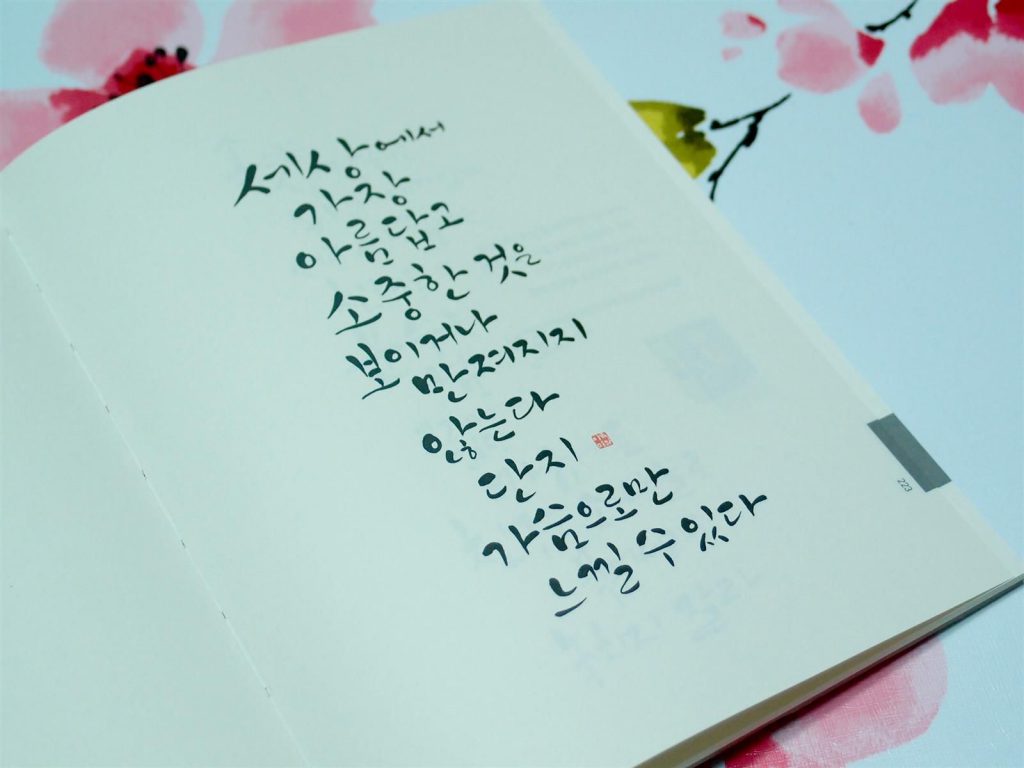 세상에서
가장
아름답고
소중한 것을
보이거나
만져지지
않는다
단지
가슴으로만
느낄 수 있다
223